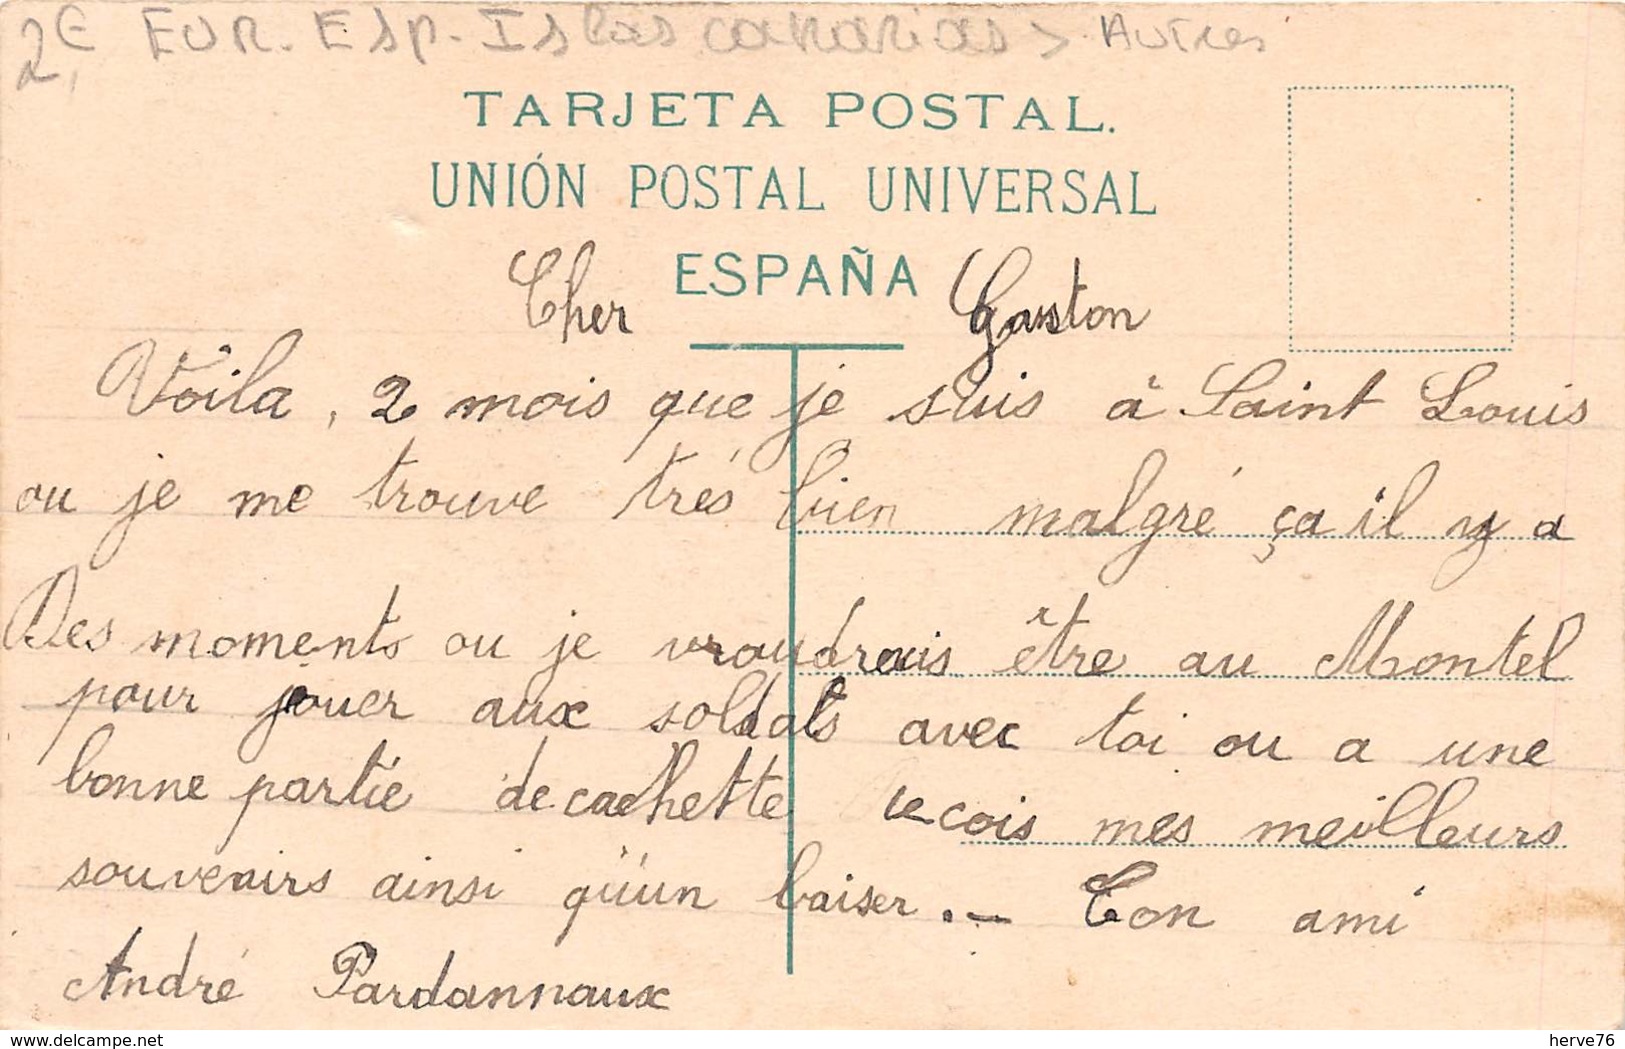 2€ EUR. ESP. Islas canarias > Autres
TARJETA POSTAL.
UNIÓN POSTAL UNIVERSAL
ESPAÑA
Cher Gaston
Voila, 2 mois que je suis à Saint Louis
ou je me trouve très bien malgré ça il y a
Des moments ou je vroudrais être au Montel
pour jouer aux soldats avec toi ou a une
bonne partie de cachette Recois mes meilleurs
souvenirs ainsi qu'un baiser. — Ton ami
André Pardannaux
delcampe.net hervé76